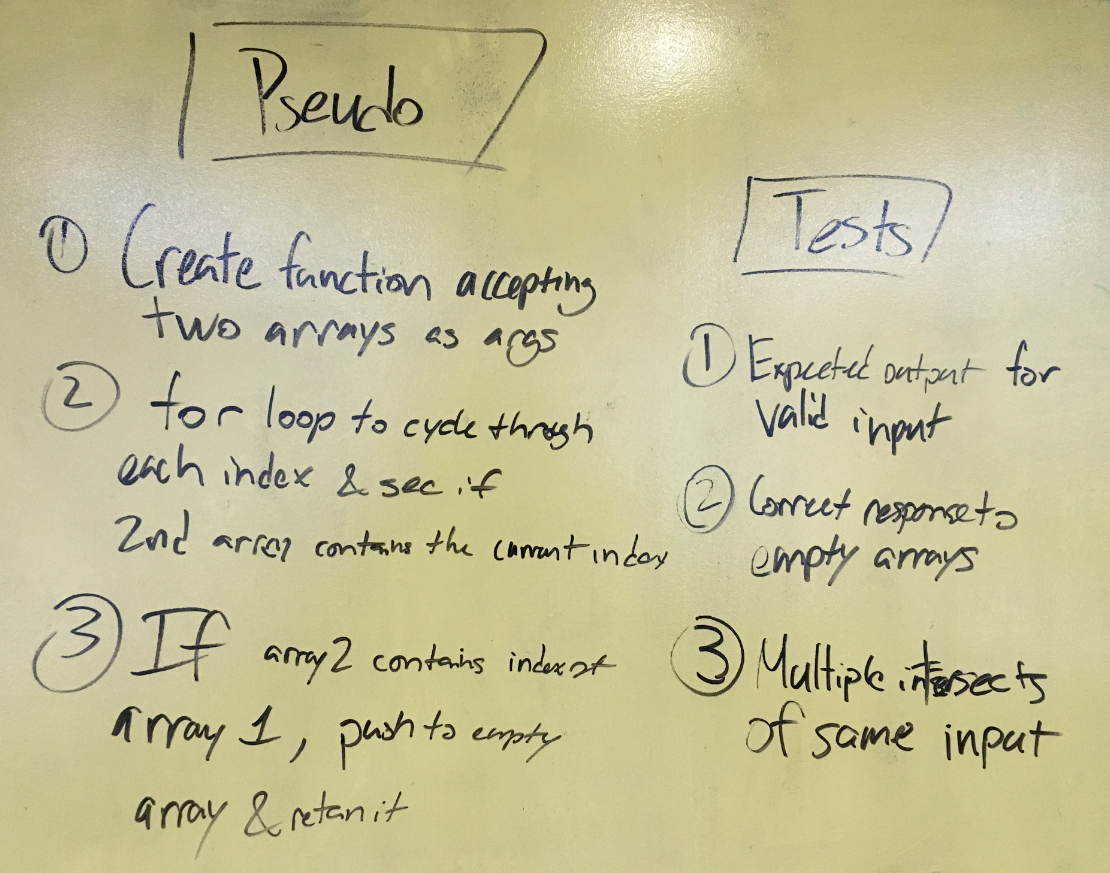 Pseudo
① Create function accepting
two arrays as args
② for loop to cycle through
each index & see if
2nd array contains the current index
③ If array2 contains index of
array 1, push to empty
array & return it
Tests
① Expected output for
valid input
② Correct response to
empty arrays
③ Multiple intersects
of same input